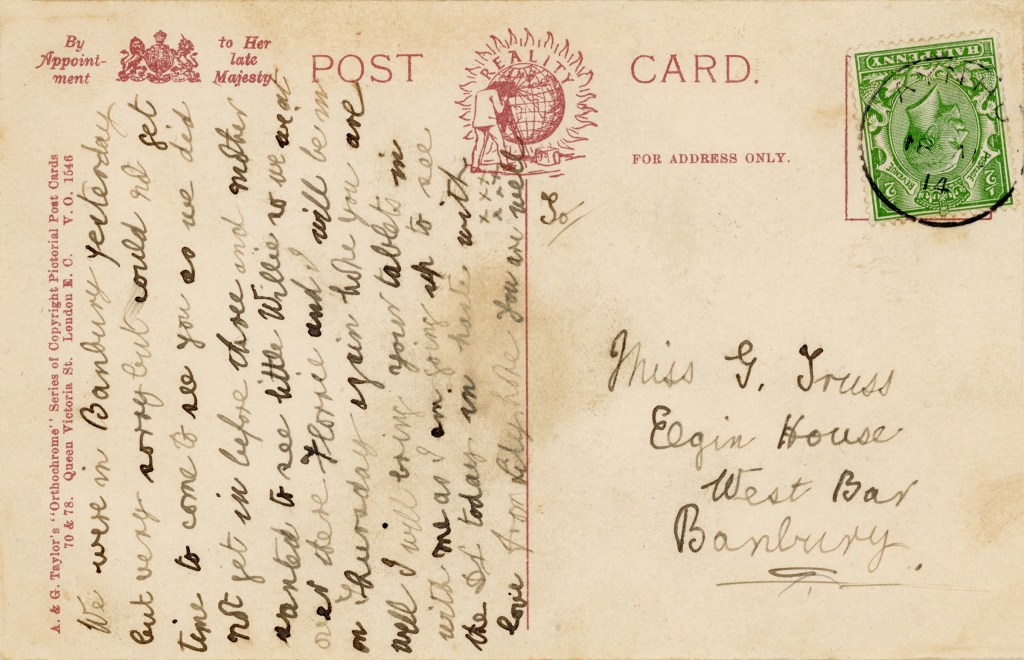 By Appoint-ment
to Her late Majesty
POST CARD.
REALITY
FOR ADDRESS ONLY.
HALFPENNY
POSTAGE
REVENUE
½ ½
14
A. & G. Taylor's "Orthochrome" Series of Copyright Pictorial Post Cards
70 & 78. Queen Victoria St. London E. C. V. O. 1546
We were in Banbury yesterday
but very sorry but could not get
time to come to see you as we did
not get in before three and mother
wanted to see little Willie so we went
over there Florrie and I will be in
on Thursday again hope you are
well I will bring your tablets in
with me as I am going up to see
the Dr today in haste with
love from Lily hope you are well
Miss G. Truss
Elgin House
West Bar
Banbury